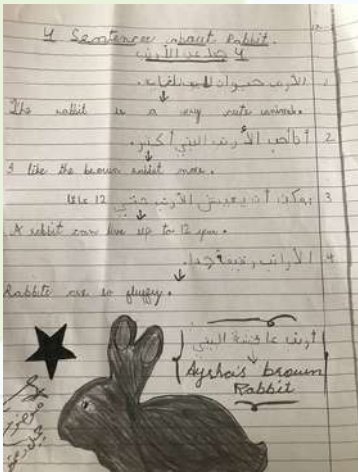 4 Sentences about Rabbit.
4 جمل عن الأرنب
1 الأرنب حيوان لطيف للغاية.
The rabbit is a very cute animal.
2 أنا أحب الأرنب البني أكثر.
I like the brown rabbit more.
3 يمكن أن يعيش الأرنب حتي 12 عامًا
A rabbit can live up to 12 year.
4 الأرانب رقيقة جدا.
Rabbits are so fluffy.
أرنب عائشة البني
Aysha's brown
Rabbit